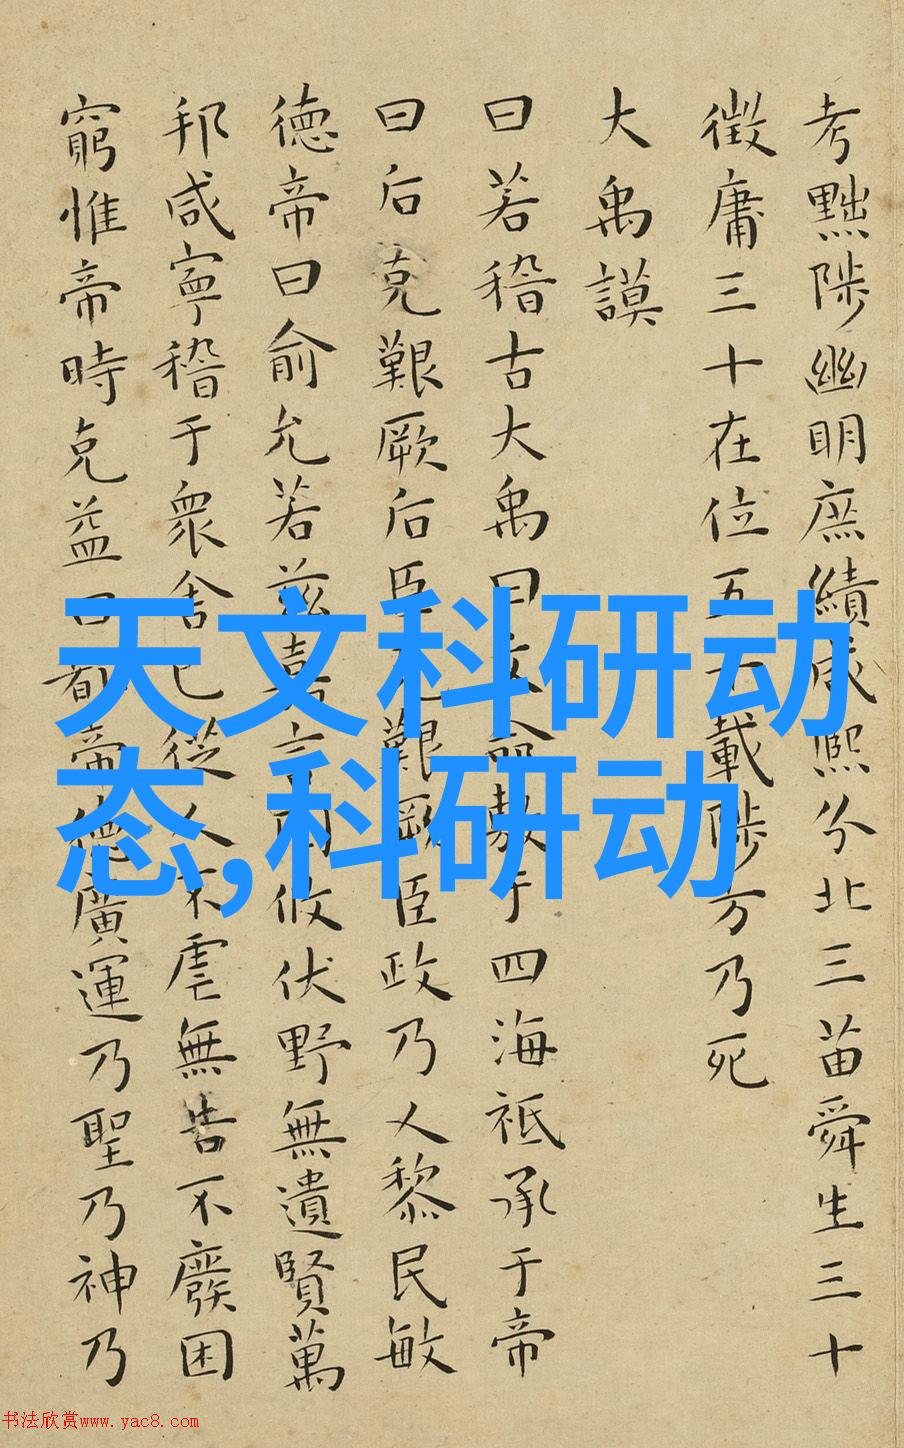 考黜陟幽明庶績咸熙分北三苗舜生三十
徵庸三十在位五十載陟方乃死
大禹謨
曰若稽古大禹曰文命敷于四海祗承于帝
曰后克艱厥后臣克艱厥臣政乃乂黎民敏
德帝曰俞允若茲嘉言罔攸伏野無遺賢萬
邦咸寧稽于衆舍已從人不虐無告不廢困
窮惟帝時克益曰都帝德廣運乃聖乃神乃
天文科研动
态,科研动
书法欣赏www.yac8.com